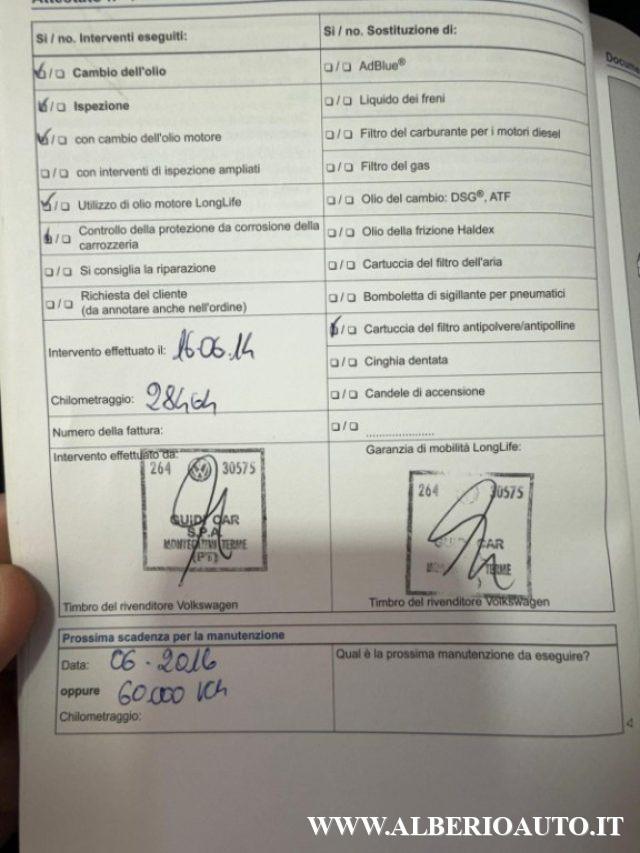 Si / no. Interventi eseguiti:
Si / no. Sostituzione di:
Cambio dell'olio
Ispezione
con cambio dell'olio motore
con interventi di ispezione ampliati
Utilizzo di olio motore LongLife
Controllo della protezione da corrosione della
carrozzeria
Si consiglia la riparazione
Richiesta del cliente
(da annotare anche nell'ordine)
AdBlue®
Liquido dei freni
Filtro del carburante per i motori diesel
Filtro del gas
Olio del cambio: DSG®, ATF
Olio della frizione Haldex
Cartuccia del filtro dell'aria
Bomboletta di sigillante per pneumatici
Cartuccia del filtro antipolvere/antipolline
Cinghia dentata
Candele di accensione
Intervento effettuato il: 16.06.14
Chilometraggio: 28464
Numero della fattura:
Intervento effettuato da:
264 30575
GUIDI CAR
S.P.A.
MONTECATINI TERME
(PT)
Timbro del rivenditore Volkswagen
Garanzia di mobilità LongLife:
264 30575
CAR
TERME
Timbro del rivenditore Volkswagen
Prossima scadenza per la manutenzione
Data: 06 - 2016
oppure 60.000
Chilometraggio:
Qual è la prossima manutenzione da eseguire?
WWW.ALBERIOAUTO.IT